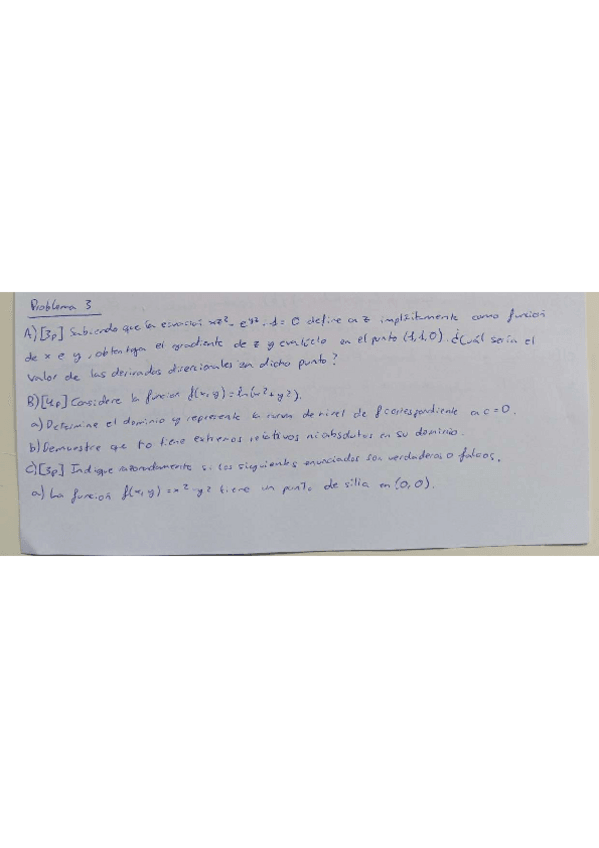 Problema 3
A) [3p] Sabiendo que la ecuación xz² - e^yz + 1 = 0 define a z implícitamente como función
de x e y, obtenga el gradiente de z y evalúelo en el punto (1,1,0). ¿Cuál sería el
valor de las derivadas direccionales en dicho punto?
B) [4p] Considere la función f(x,y) = ln(x²+y²).
a) Determine el dominio y represente la curva de nivel de f correspondiente a c=0.
b) Demuestre que f no tiene extremos relativos ni absolutos en su dominio.
C) [3p] Indique razonadamente si los siguientes enunciados son verdaderos o falsos.
a) La función f(x,y) = x²-y² tiene un punto de silla en (0,0).